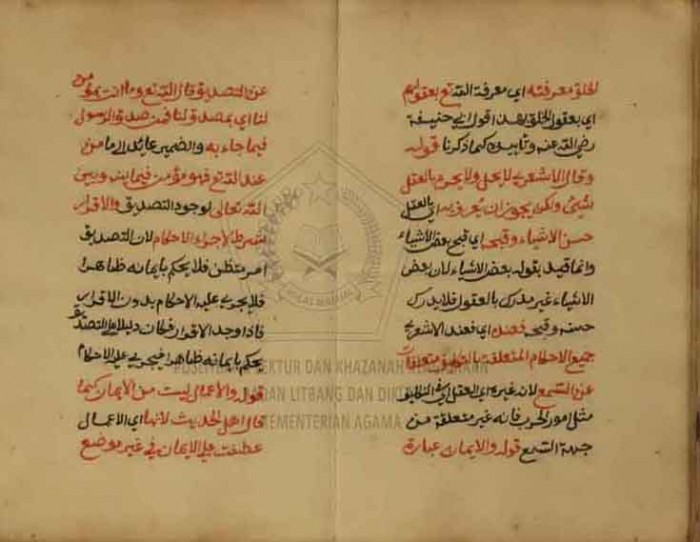 الخلق معرفته اي معرفة الله تع بعقولهم
اي بعقول الخلق لهذا قول ابي حنيفة
رضي الله عنه وتابيده كما ذكرنا قوله
وقال الاشعري لا يحل ولا يحرم بالعقل
شيئ ولكن يجوز ان يعرف به اي بالعقل
حسن الاشياء وقبحها اي قبح بعض الاشياء
وانما قيد بقوله بعض الاشياء لان بعض
الاشياء غير مدرك بالعقول فلا يدرك
حسنه وقبحه فعند اي فعند الاشعري
جميع الاحكام المتعلقة بالتكليف متعلقات
عن السمع لانه غيره اي العقل
مثل امور الحرب فانه غير متعلقة من
جهة السمع قوله والايمان عبارة
عن التصديق قال الله تع وما انت بمؤمن
لنا اي بمصدق لنا فمن صدق الرسول
فيما جاء به والضمير عائد الى ما من
عند الله تع فهو مؤمن فيما بينه وبين
الله تعالى لوجود التصديق والاقرار
شرط لاجراء الاحكام لان التصديق
امر مبطن فلا يحكم بايمانه ظاهرا
فلا يجري عليه الاحكام بدون الاقرار
فاذا وجد الاقرار فكان دليلا على التصديق
يحكم بايمانه ظاهرا فيجري عليه الاحكام
قوله والاعمال ليست من الايمان كما
قال اهل الحديث لانها اي الاعمال
عطفت على الايمان في غير موضع
PUSLITBANG LEKTUR DAN KHAZANAH KEAGAMAAN
BADAN LITBANG DAN DIKLAT
KEMENTERIAN AGAMA